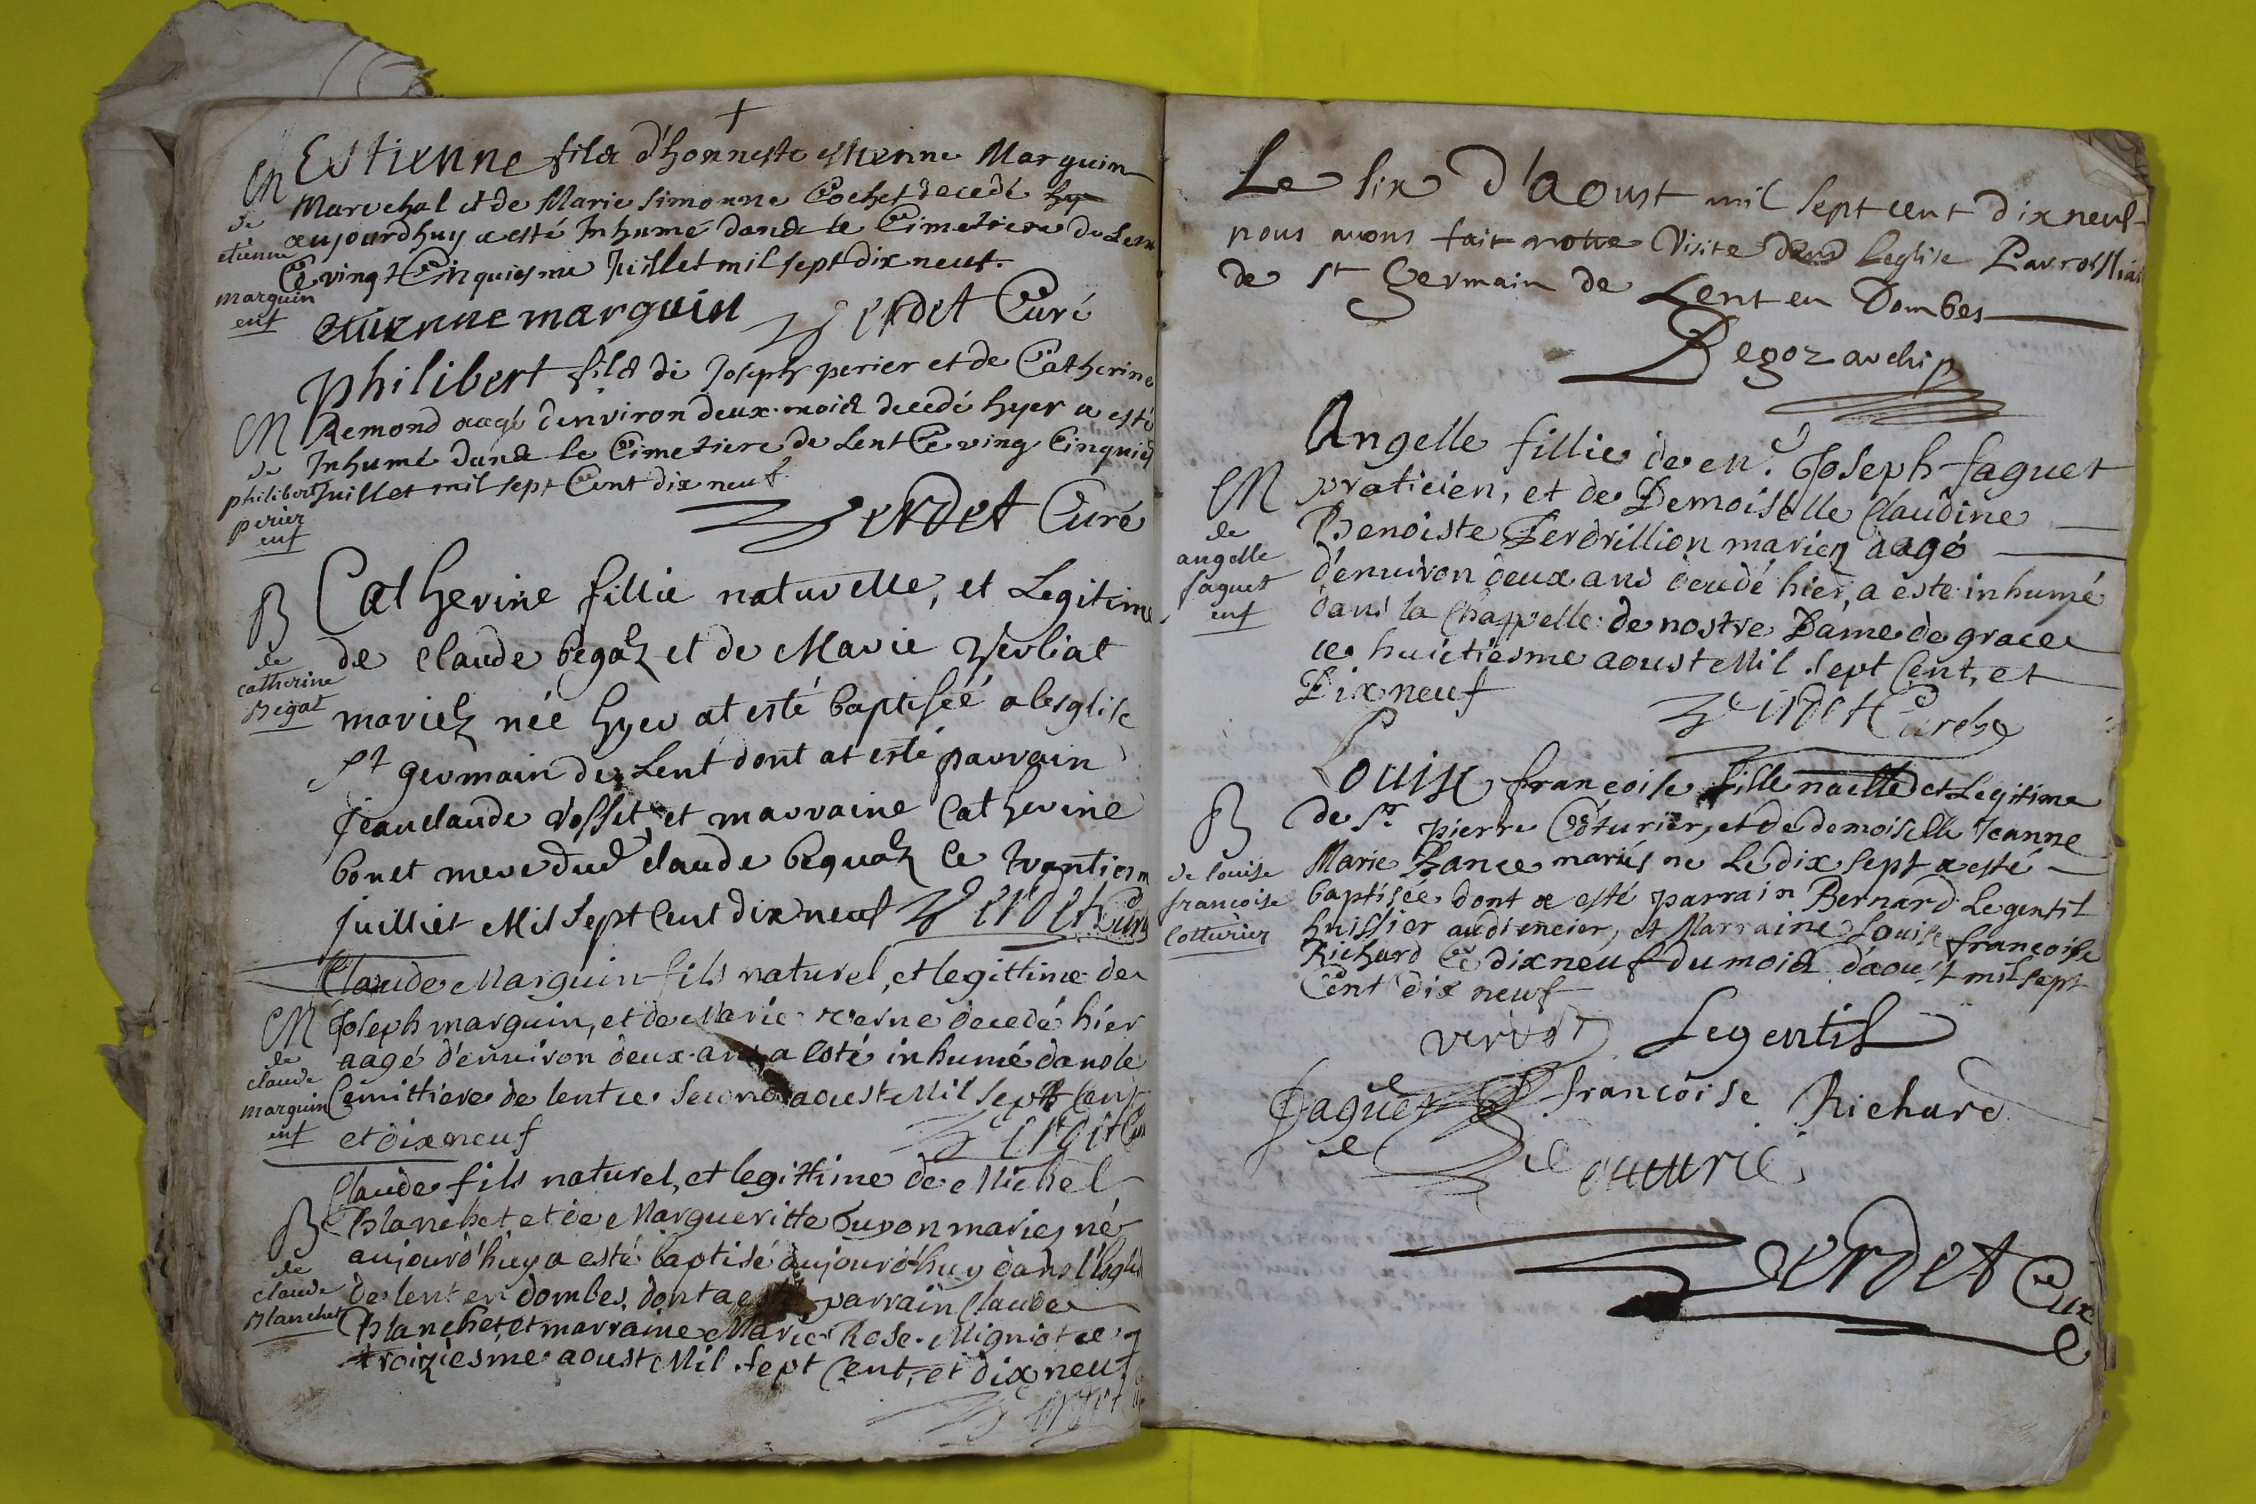 M
de
etienne
marguin
enf
Estienne fils d'honneste estienne Marguin
Marechal et de Marie Simonne Cochet decedé hy
aujourdhuy a esté Inhumé dans le Cimetiere de Lent
Ce vingt Cinquiesme Juillet mil sept dix neuf.
etiienne marguin Verdet Curé
M
de
philibert
perier
enf
Philibert fils de Joseph perier et de Catherine
Remond aagé denviron deux mois decedé hyer a esté
Inhumé dans le Cimetiere de Lent Ce ving Cinquies
Juillet mil sept Cent dix neuf
Verdet Curé
B
de
catherine
Begat
Catherine fillie naturelle, et Legitime
de claude begat et de Marie Verliat
mariez née hyer at esté baptiseé a lesglise
St germain de Lent dont at esté parrain
Jean claude Rosset et marraine Catherine
bonet mere dud claude beguat Ce trantiesm
juilliet Mil sept Cent dix neuf Verdet Curé
M
de
claude
marguin
enf
Claude Marguin fils naturel, et legittime de
Joseph marguin, et de Marie verne decedé hier
aagé d'enuiron deux ans a esté inhumé dans le
Cemittiere de lent ce second aoust Mil sept Cent
et dix neuf Verdet Curé
B
de
claude
Blanchet
Claude fils naturel, et legittime de Michel
Blanchet, et de Margueritte Guyon maries né
aujourd'huy a esté baptisé aujourd'huy dans l'Eglise
de lent en dombes, dont a esté parrain Claude
Blanchet, et marraine Marie Rose Migniot ce
troiziesme aoust Mil sept Cent, et dix neuf
Verdet
Le six d'aoust mil sept cent dix neuf
nous avons fait notre Visite dans leglise Parroissiale
de St Germain de Lent en Dombes
Degoz archip
M
de
angelle
faguet
enf
Angelle fillie de en.d Joseph faguet
praticien, et de Demoiselle Claudine
Benoiste Perdrillion mariez aagé
d'enuiron deux ans decedé hier, a este inhumé
dans la Chappelle de nostre Dame de grace
ce huictiesme aoust Mil sept Cent, et
Dix neuf
Verdet Curé
B
de louise
francoise
Cotturier
Louise francoise fille naelle et Legitime
de Sr pierre Cotturier, et de demoiselle Jeanne
Marie Bance mariés né Le dix sept a esté
baptisée dont a esté parrain Bernard Legentil
huissier audiencier, et Marraine Louise francoise
Richard Ce dix neuf du mois d'aoust mil sept
Cent dix neuf
Legentil
faguet francoise Richard
Verdet Curé